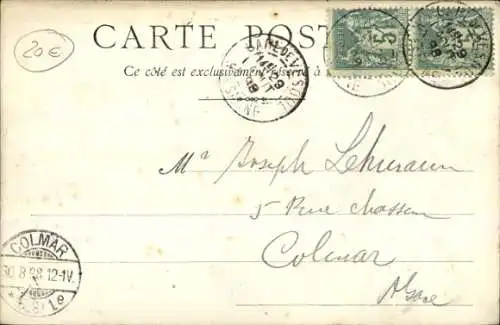 20€
CARTE POST
Ce côté est exclusivement réservé à
GARE DE VESOUL
29
98
5
Mr Joseph Lehmann
5 Rue
Colmar
Alsace
COLMAR
30.8.98.12-1V.